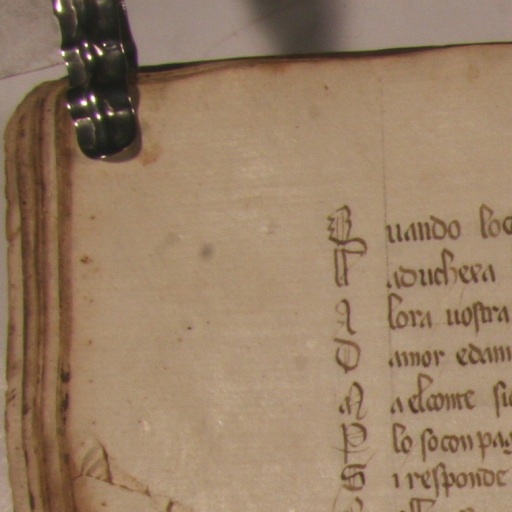 Quando lo
P aduchera
A lora uostra
D amor edam
M a elconte si
P lo so con pag
S i responde